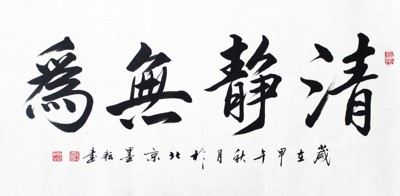 清静無為
歲在甲午秋月於北京墨耘書